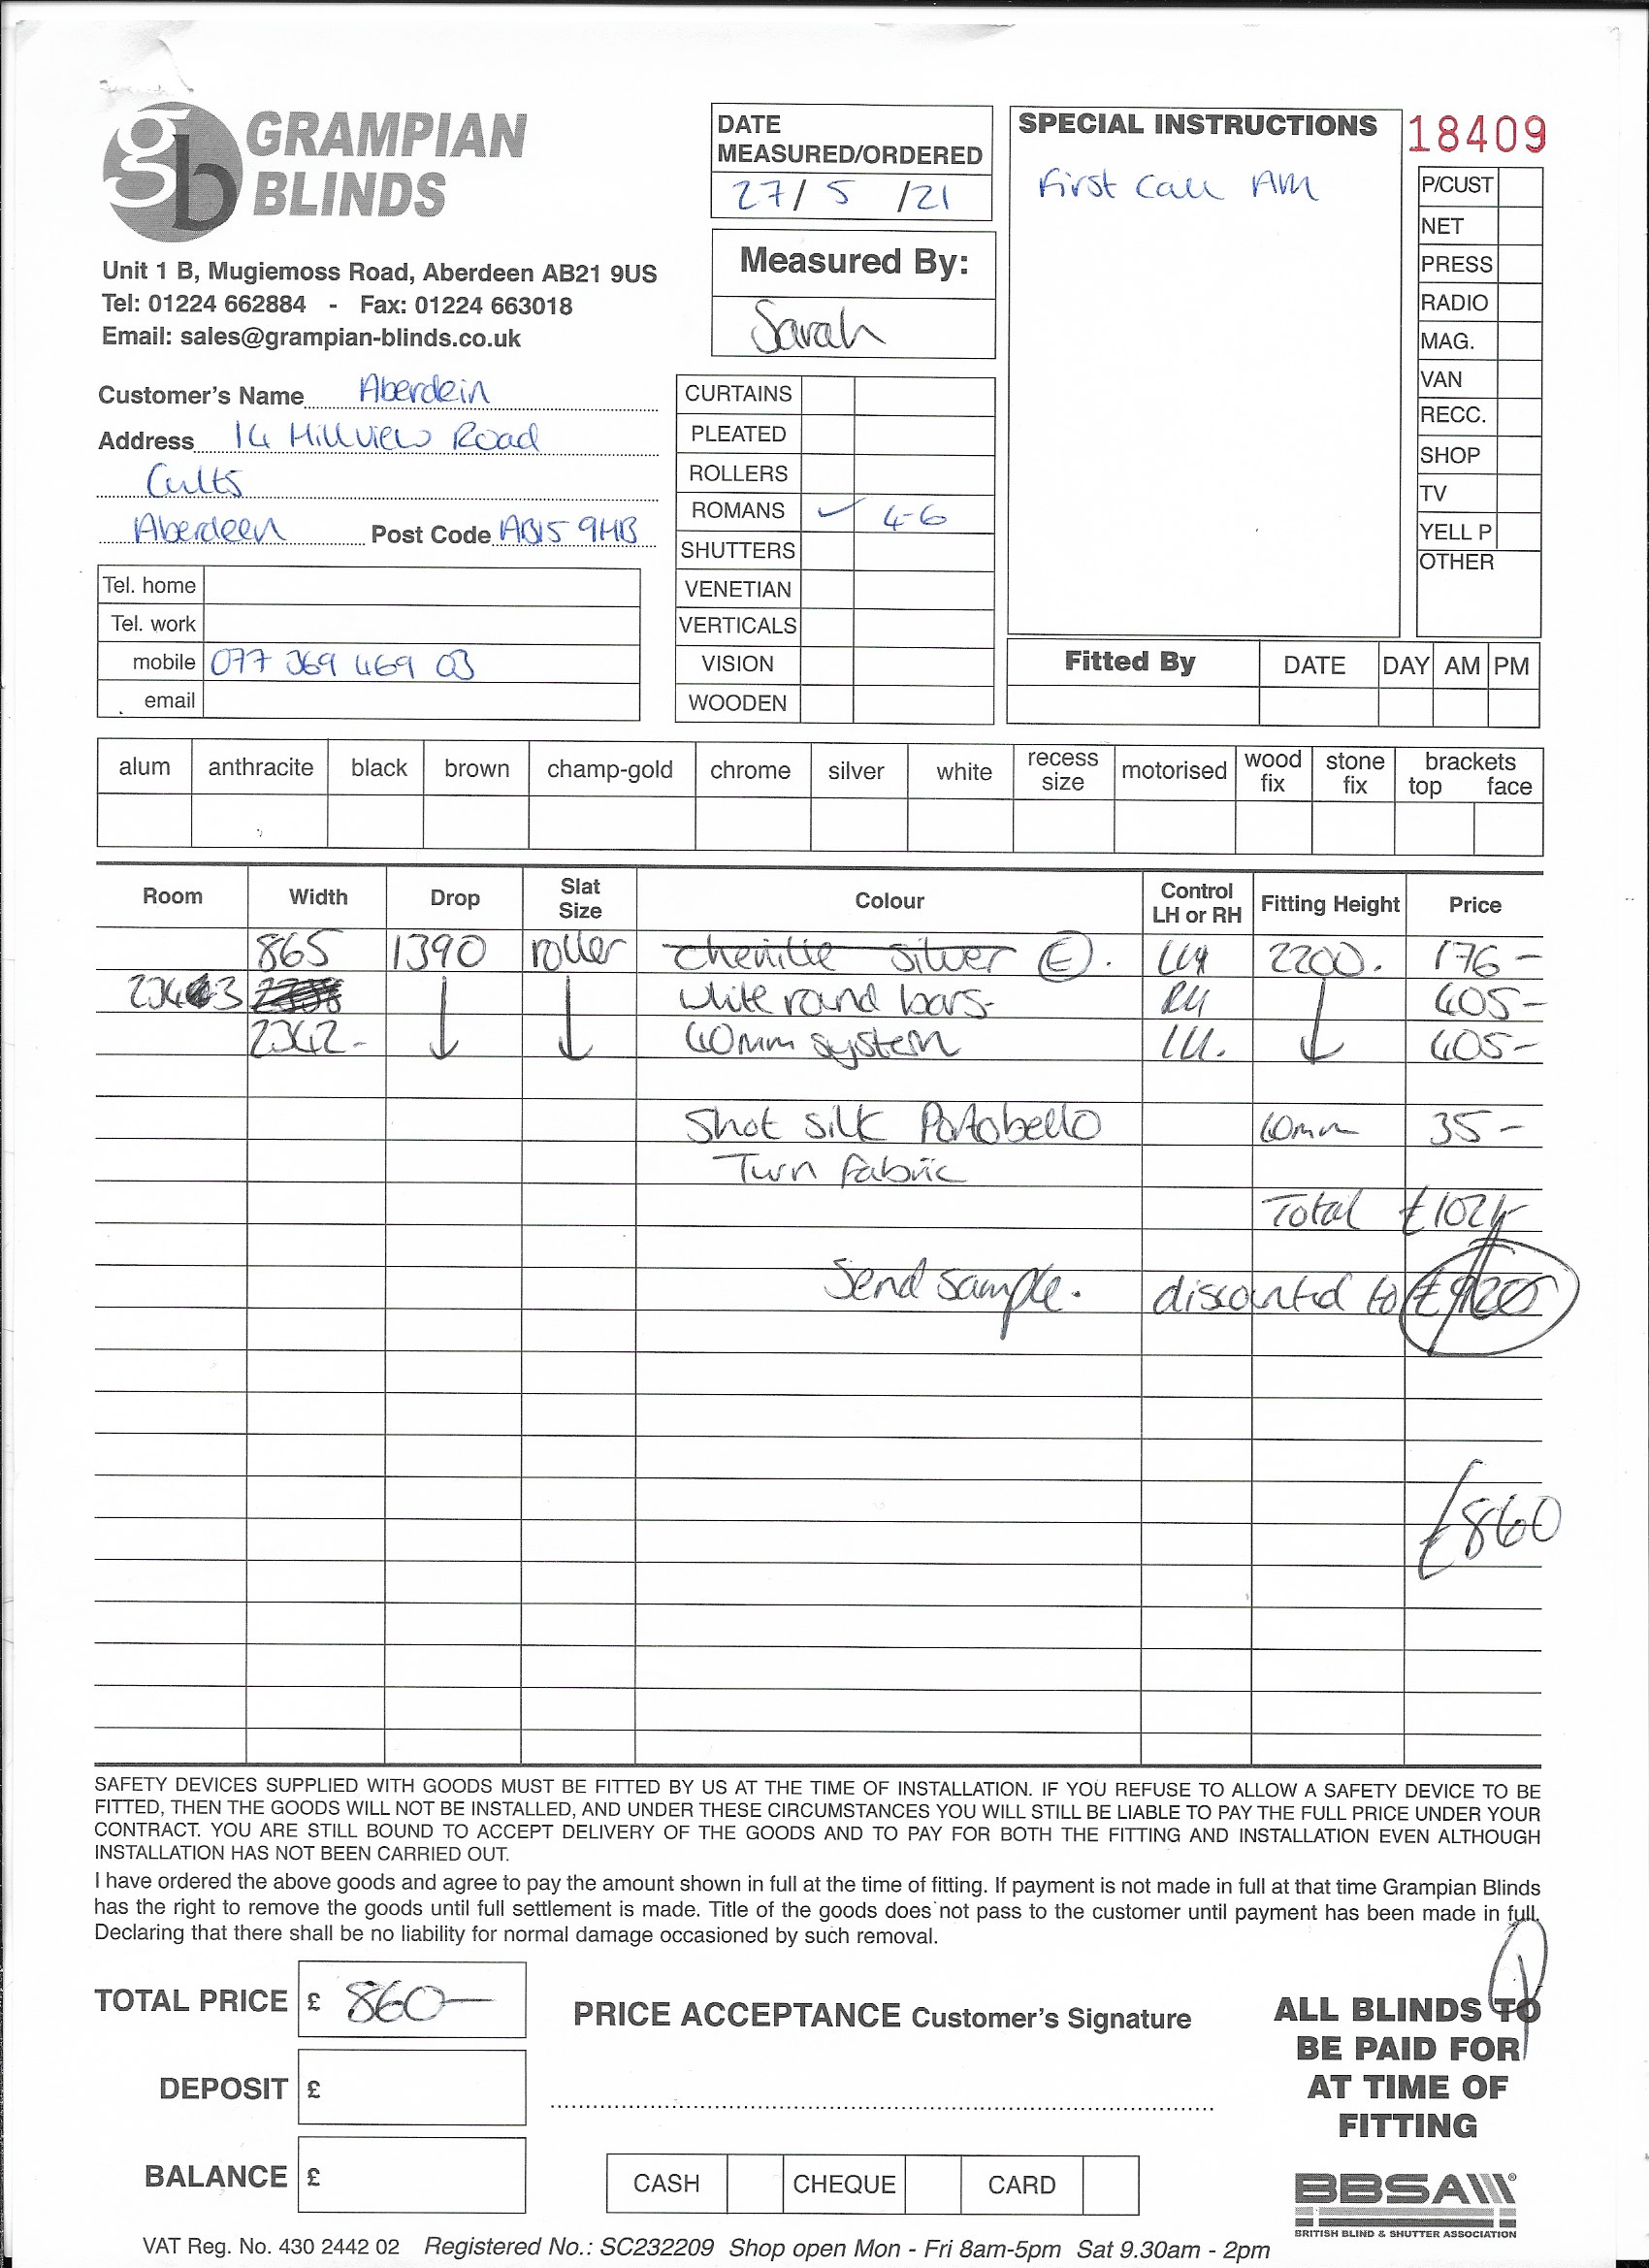 gb GRAMPIAN BLINDS
Unit 1 B, Mugiemoss Road, Aberdeen AB21 9US
Tel: 01224 662884 - Fax: 01224 663018
Email: sales@grampian-blinds.co.uk
DATE MEASURED/ORDERED
27/ 5 /21
Measured By:
Sarah
SPECIAL INSTRUCTIONS
First Call AM
18409
P/CUST
NET
PRESS
RADIO
MAG.
VAN
RECC.
SHOP
TV
YELL P
OTHER
Customer's Name Aberdein
Address 14 Hillview Road
Cults
Aberdeen Post Code AB15 9HB
Tel. home
Tel. work
mobile 077 369 469 03
email
CURTAINS
PLEATED
ROLLERS
ROMANS ✓ 4-6
SHUTTERS
VENETIAN
VERTICALS
VISION
WOODEN
Fitted By DATE DAY AM PM
alum anthracite black brown champ-gold chrome silver white recess size motorised wood fix stone fix brackets top face
Room Width Drop Slat Size Colour Control LH or RH Fitting Height Price
865 1390 roller chenille silver (E). LH 2200. 176-
white round bars- RH 405-
2342- 40mm system LH. 405-
Shot silk Portobello 35-
Turn fabric
Total
Send sample. discounted to
£860
SAFETY DEVICES SUPPLIED WITH GOODS MUST BE FITTED BY US AT THE TIME OF INSTALLATION. IF YOU REFUSE TO ALLOW A SAFETY DEVICE TO BE
FITTED, THEN THE GOODS WILL NOT BE INSTALLED, AND UNDER THESE CIRCUMSTANCES YOU WILL STILL BE LIABLE TO PAY THE FULL PRICE UNDER YOUR
CONTRACT. YOU ARE STILL BOUND TO ACCEPT DELIVERY OF THE GOODS AND TO PAY FOR BOTH THE FITTING AND INSTALLATION EVEN ALTHOUGH
INSTALLATION HAS NOT BEEN CARRIED OUT.
I have ordered the above goods and agree to pay the amount shown in full at the time of fitting. If payment is not made in full at that time Grampian Blinds
has the right to remove the goods until full settlement is made. Title of the goods does not pass to the customer until payment has been made in full.
Declaring that there shall be no liability for normal damage occasioned by such removal.
TOTAL PRICE £ 860-
DEPOSIT £
BALANCE £
PRICE ACCEPTANCE Customer's Signature
CASH CHEQUE CARD
ALL BLINDS TO
BE PAID FOR
AT TIME OF
FITTING
BBSA
BRITISH BLIND & SHUTTER ASSOCIATION
VAT Reg. No. 430 2442 02 Registered No.: SC232209 Shop open Mon - Fri 8am-5pm Sat 9.30am - 2pm